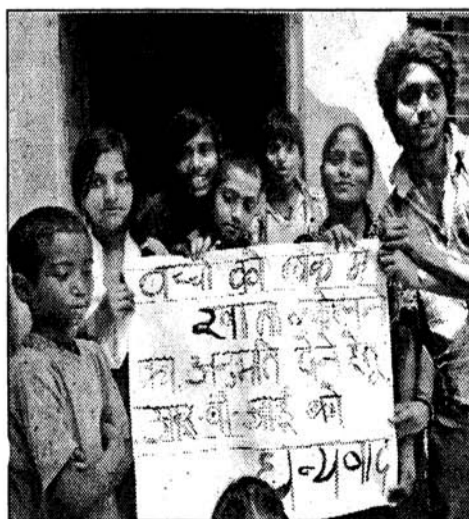 बच्चो को में
खाता खोलने
का अनुमति देने हेतू
आर बी आई को
धन्यवाद